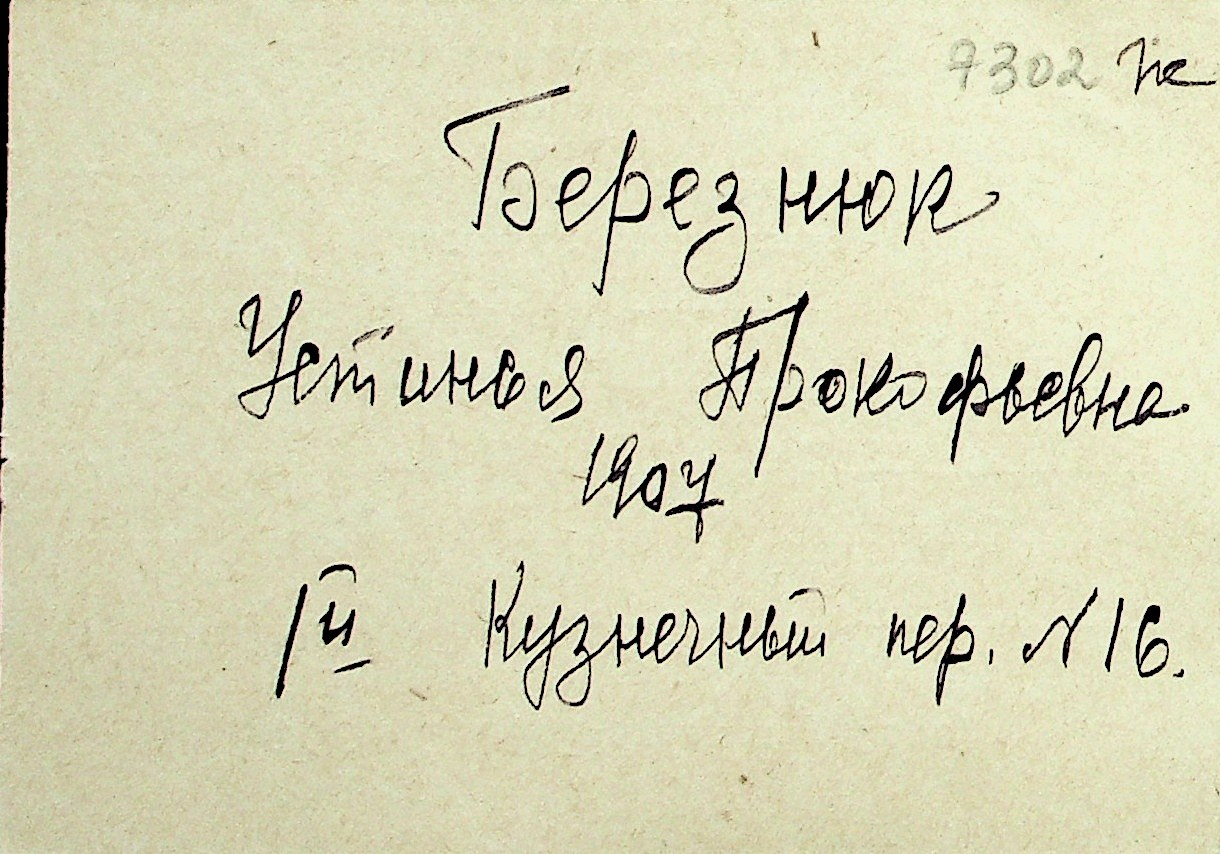 7302
Березнюк
Устинья Прокофьевна
1907
1й Кузнечный пер. N 16.